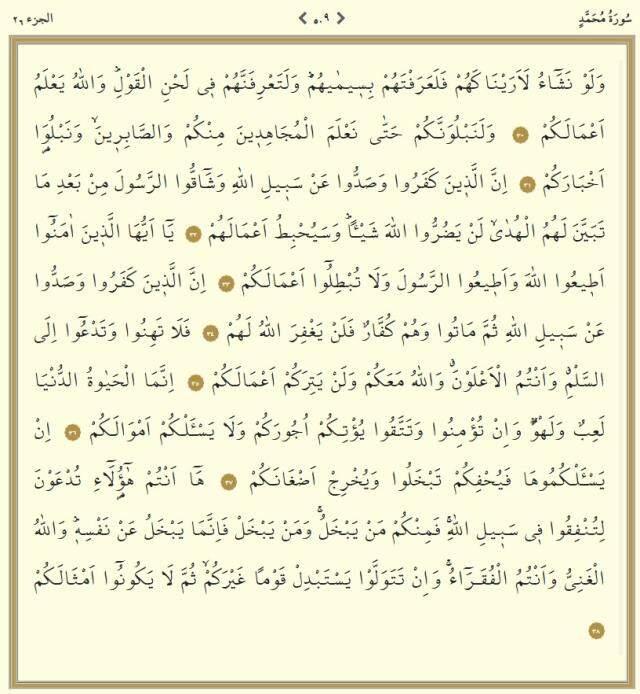 سُورَةُ مُحَمَّدٍ ❮ ٥٠٩ ❯ الجزء ٢٦
وَلَوْ نَشَٓاءُ لَاَرَيْنَاكَهُمْ فَلَعَرَفْتَهُمْ بِسٖيمٰيهُمْۜ وَلَتَعْرِفَنَّهُمْ فٖي لَحْنِ الْقَوْلِۜ وَاللّٰهُ يَعْلَمُ
اَعْمَالَكُمْ ٣٠ وَلَنَبْلُوَنَّكُمْ حَتّٰى نَعْلَمَ الْمُجَاهِدٖينَ مِنْكُمْ وَالصَّابِرٖينَۙ وَنَبْلُوَ۬ا
اَخْبَارَكُمْ ٣١ اِنَّ الَّذٖينَ كَفَرُوا وَصَدُّوا عَنْ سَبٖيلِ اللّٰهِ وَشَٓاقُّوا الرَّسُولَ مِنْ بَعْدِ مَا
تَبَيَّنَ لَهُمُ الْهُدٰىۙ لَنْ يَضُرُّوا اللّٰهَ شَيْـٔاًۜ وَسَيُحْبِطُ اَعْمَالَهُمْ ٣٢ يَٓا اَيُّهَا الَّذٖينَ اٰمَنُٓوا
اَطٖيعُوا اللّٰهَ وَاَطٖيعُوا الرَّسُولَ وَلَا تُبْطِلُٓوا اَعْمَالَكُمْ ٣٣ اِنَّ الَّذٖينَ كَفَرُوا وَصَدُّوا
عَنْ سَبٖيلِ اللّٰهِ ثُمَّ مَاتُوا وَهُمْ كُفَّارٌ فَلَنْ يَغْفِرَ اللّٰهُ لَهُمْ ٣٤ فَلَا تَهِنُوا وَتَدْعُٓوا اِلَى
السَّلْمِۗ وَاَنْتُمُ الْاَعْلَوْنَۗ وَاللّٰهُ مَعَكُمْ وَلَنْ يَتِرَكُمْ اَعْمَالَكُمْ ٣٥ اِنَّمَا الْحَيٰوةُ الدُّنْيَا
لَعِبٌ وَلَهْوٌۜ وَاِنْ تُؤْمِنُوا وَتَتَّقُوا يُؤْتِكُمْ اُجُورَكُمْ وَلَا يَسْـَٔلْكُمْ اَمْوَالَكُمْ ٣٦ اِنْ
يَسْـَٔلْكُمُوهَا فَيُحْفِكُمْ تَبْخَلُوا وَيُخْرِجْ اَضْغَانَكُمْ ٣٧ هَٓا اَنْتُمْ هٰٓؤُ۬لَٓاءِ تُدْعَوْنَ
لِتُنْفِقُوا فٖي سَبٖيلِ اللّٰهِۚ فَمِنْكُمْ مَنْ يَبْخَلُۚ وَمَنْ يَبْخَلْ فَاِنَّمَا يَبْخَلُ عَنْ نَفْسِهٖۜ وَاللّٰهُ
الْغَنِيُّ وَاَنْتُمُ الْفُقَرَٓاءُۚ وَاِنْ تَتَوَلَّوْا يَسْتَبْدِلْ قَوْماً غَيْرَكُمْۙ ثُمَّ لَا يَكُونُٓوا اَمْثَالَكُمْ
٣٨